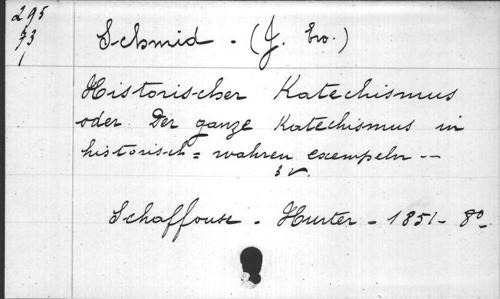 295
73
1
Schmid - (J. Ev.)
Historischer Katechismus
oder Der ganze Katechismus in
historisch = wahren exempeln --
3 v.
Schaffouse - Hurter - 1851 - 8º